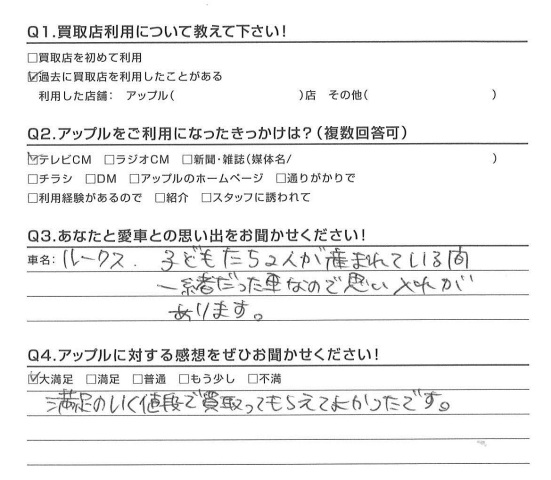 Q1.買取店利用について教えて下さい!
□買取店を初めて利用
☑過去に買取店を利用したことがある
利用した店舗: アップル( )店 その他( )
Q2.アップルをご利用になったきっかけは?(複数回答可)
☑テレビCM □ラジオCM □新聞・雑誌(媒体名/ )
□チラシ □DM □アップルのホームページ □通りがかりで
□利用経験があるので □紹介 □スタッフに誘われて
Q3.あなたと愛車との思い出をお聞かせください!
車名: ルークス. 子どもたち2人が産まれている間
一緒だった車なので思い入れが
あります。
Q4.アップルに対する感想をぜひお聞かせください!
☑大満足 □満足 □普通 □もう少し □不満
満足のいく値段で買取ってもらえてよかったです。